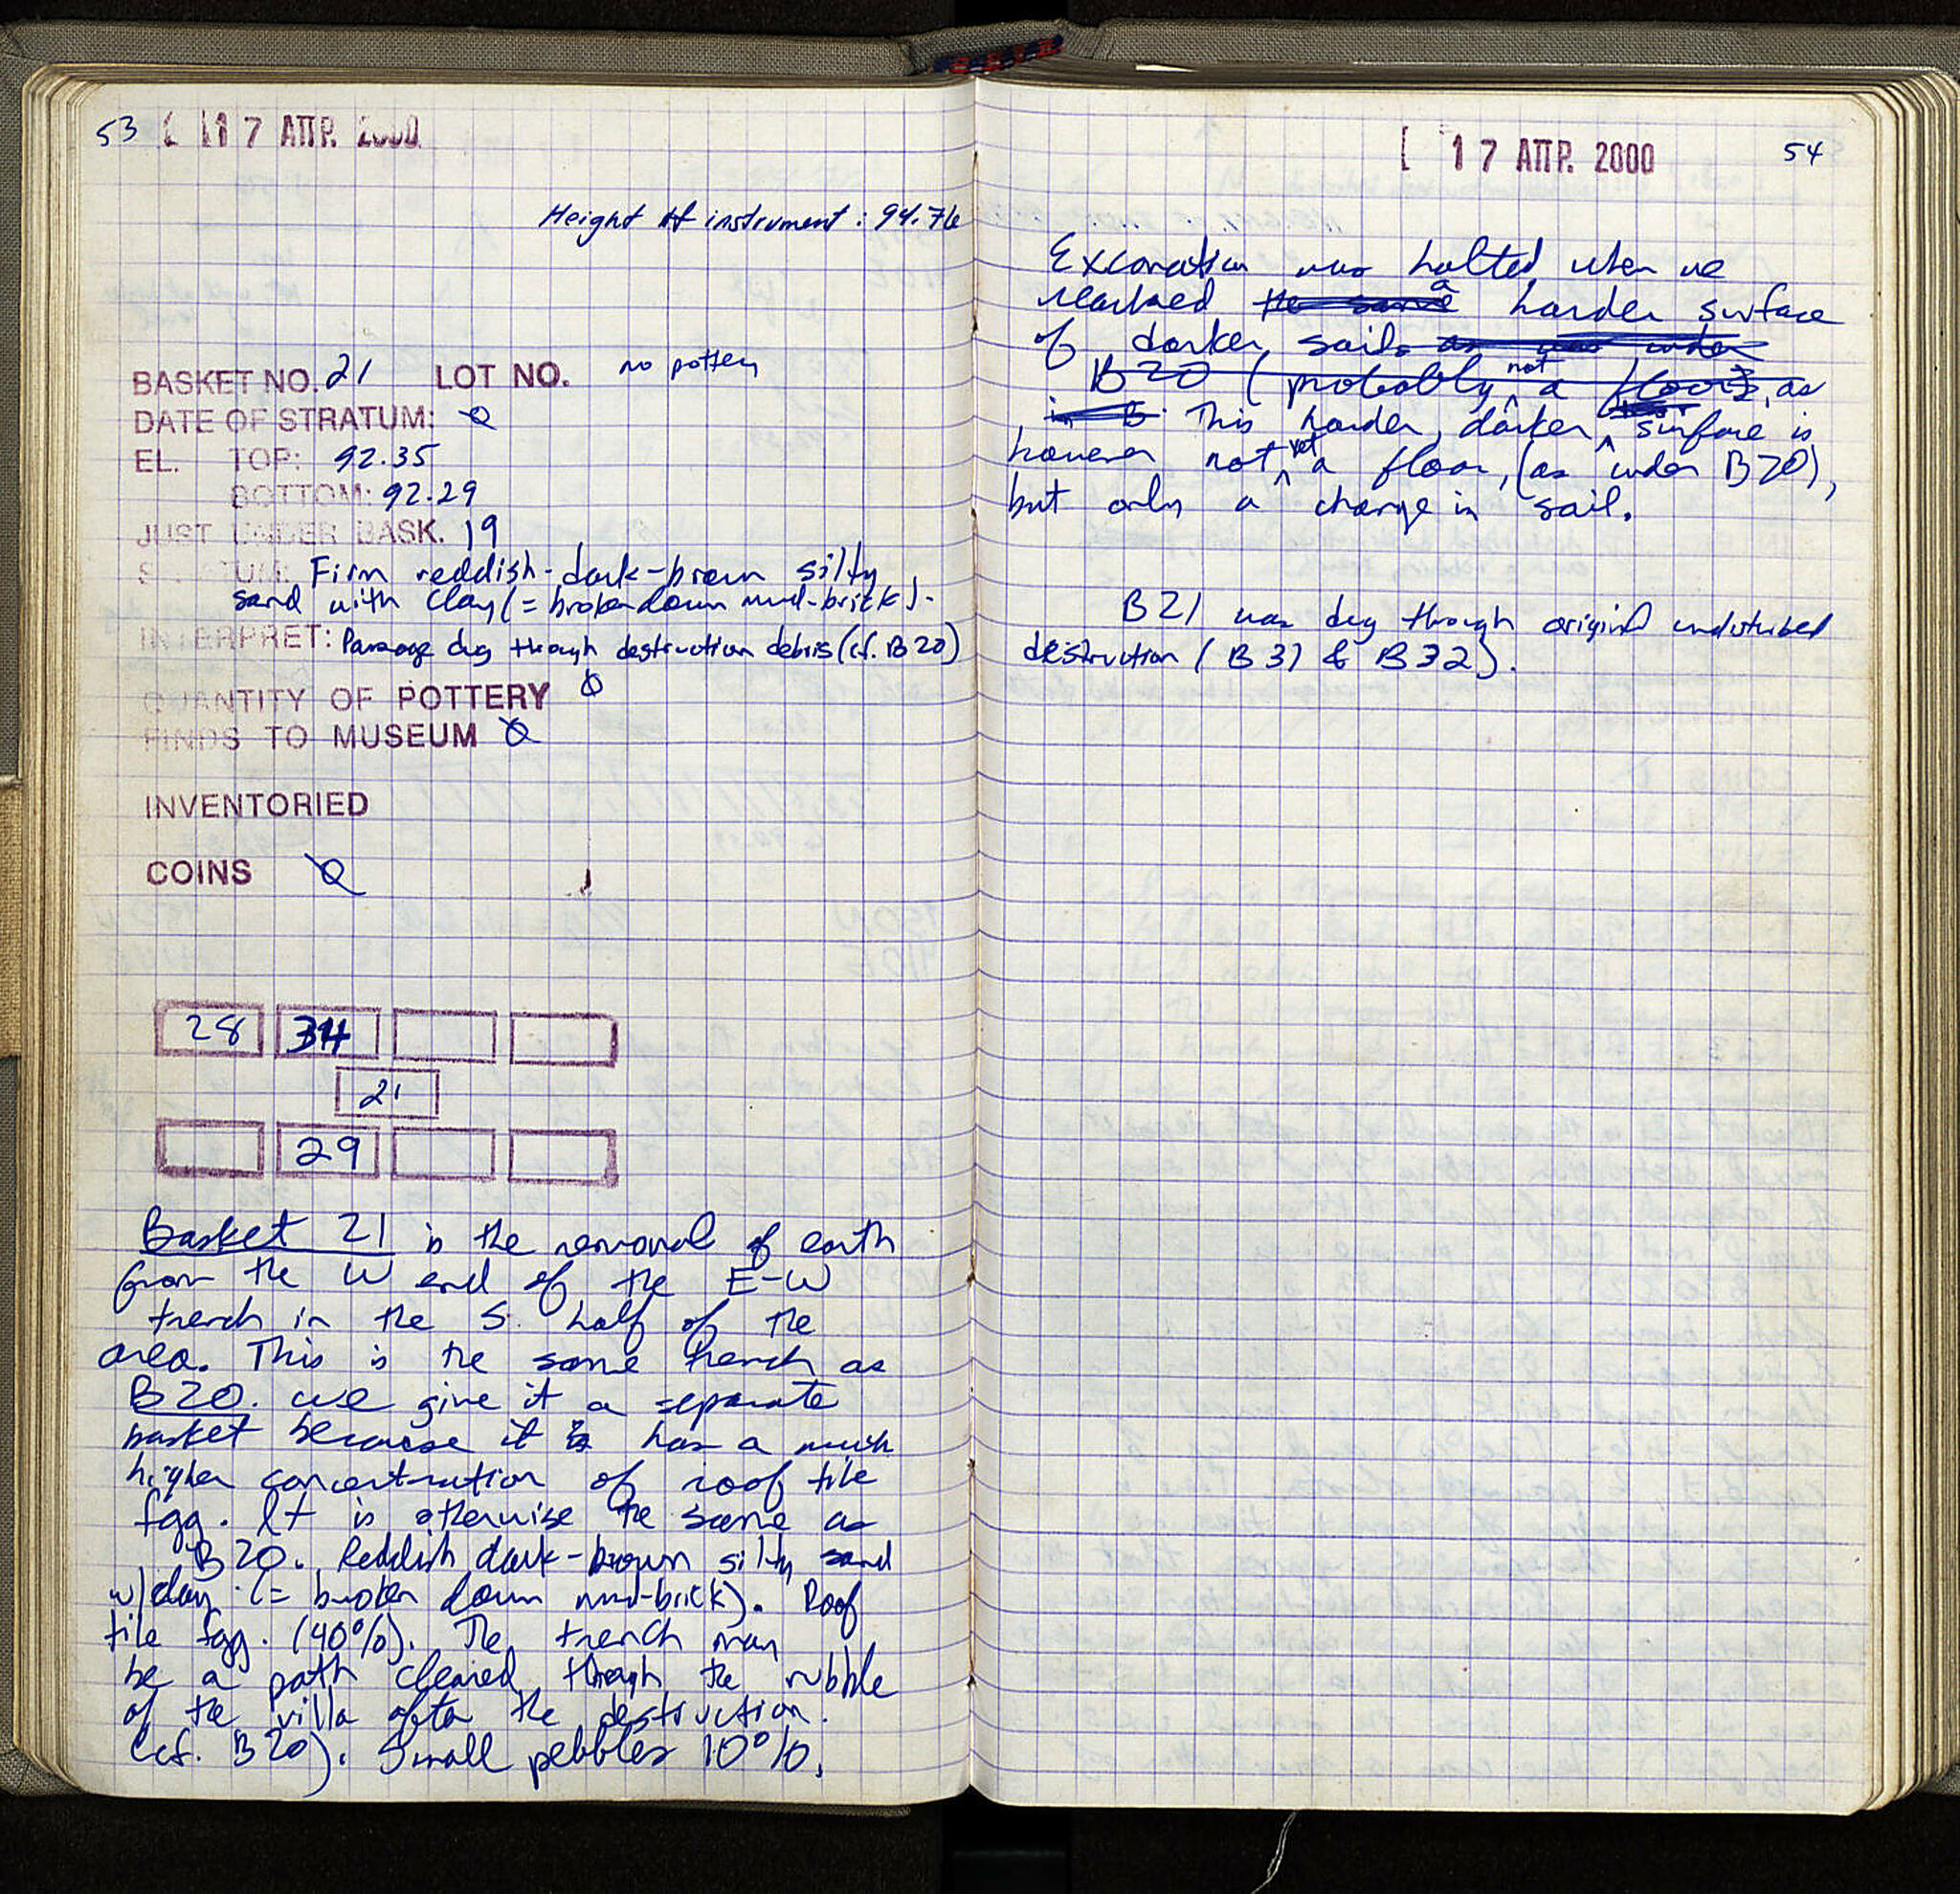 53 17 ΑΠΡ. 2000
Height of instrument : 94.76
BASKET NO. 21 LOT NO. no pottery
DATE OF STRATUM: Ø
EL. TOP: 92.35
BOTTOM: 92.29
JUST UNDER BASK. 19
STRATUM: Firm reddish-dark-brown silty
sand with clay (= broken down mud-brick).
INTERPRET: Passage dug through destruction debris (cf. B20)
QUANTITY OF POTTERY Ø
FINDS TO MUSEUM Ø
INVENTORIED
COINS Ø
28 34
21
29
Basket 21 is the removal of earth
from the W end of the E-W
trench in the S. half of the
area. This is the same trench as
B20. we give it a separate
basket because it is has a much
higher concentration of roof tile
fgg. It is otherwise the same as
B20. Reddish dark-brown silty sand
w/clay (= broken down mud-brick). Roof
tile fgg. (40%). The trench may
be a path cleared through the rubble
of the villa after the destruction.
(cf. B20). Small pebbles 10%.
17 ΑΠΡ. 2000 54
Excavation was halted when we
reached the same a harder surface
of darker soil. as was under
B20 (probably not a floor), as
in B This harder, darker surface is
however not yet a floor, (as under B20),
but only a change in soil.
B21 was dug through original undisturbed
destruction (B31 & B32).